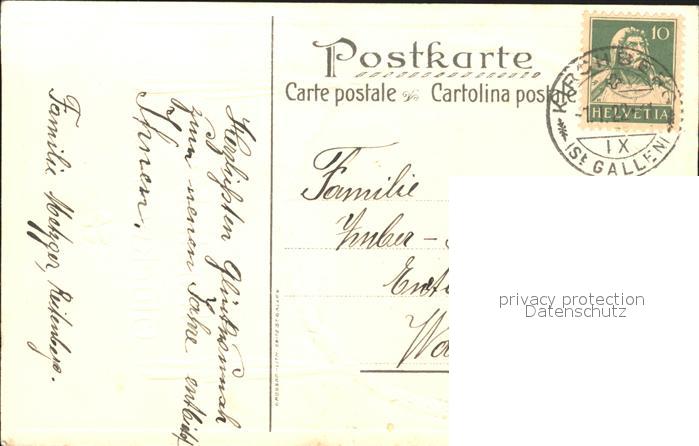 Postkarte
Carte postale Cartolina postale
10
HELVETIA
KIRCHBERG
IX
(St GALLEN)
Herzlichsten Glückwunsch
zum neuen Jahre entbietet
Ihnen.
Familie Metzger,
Familie
Huber -
privacy protection
Datenschutz